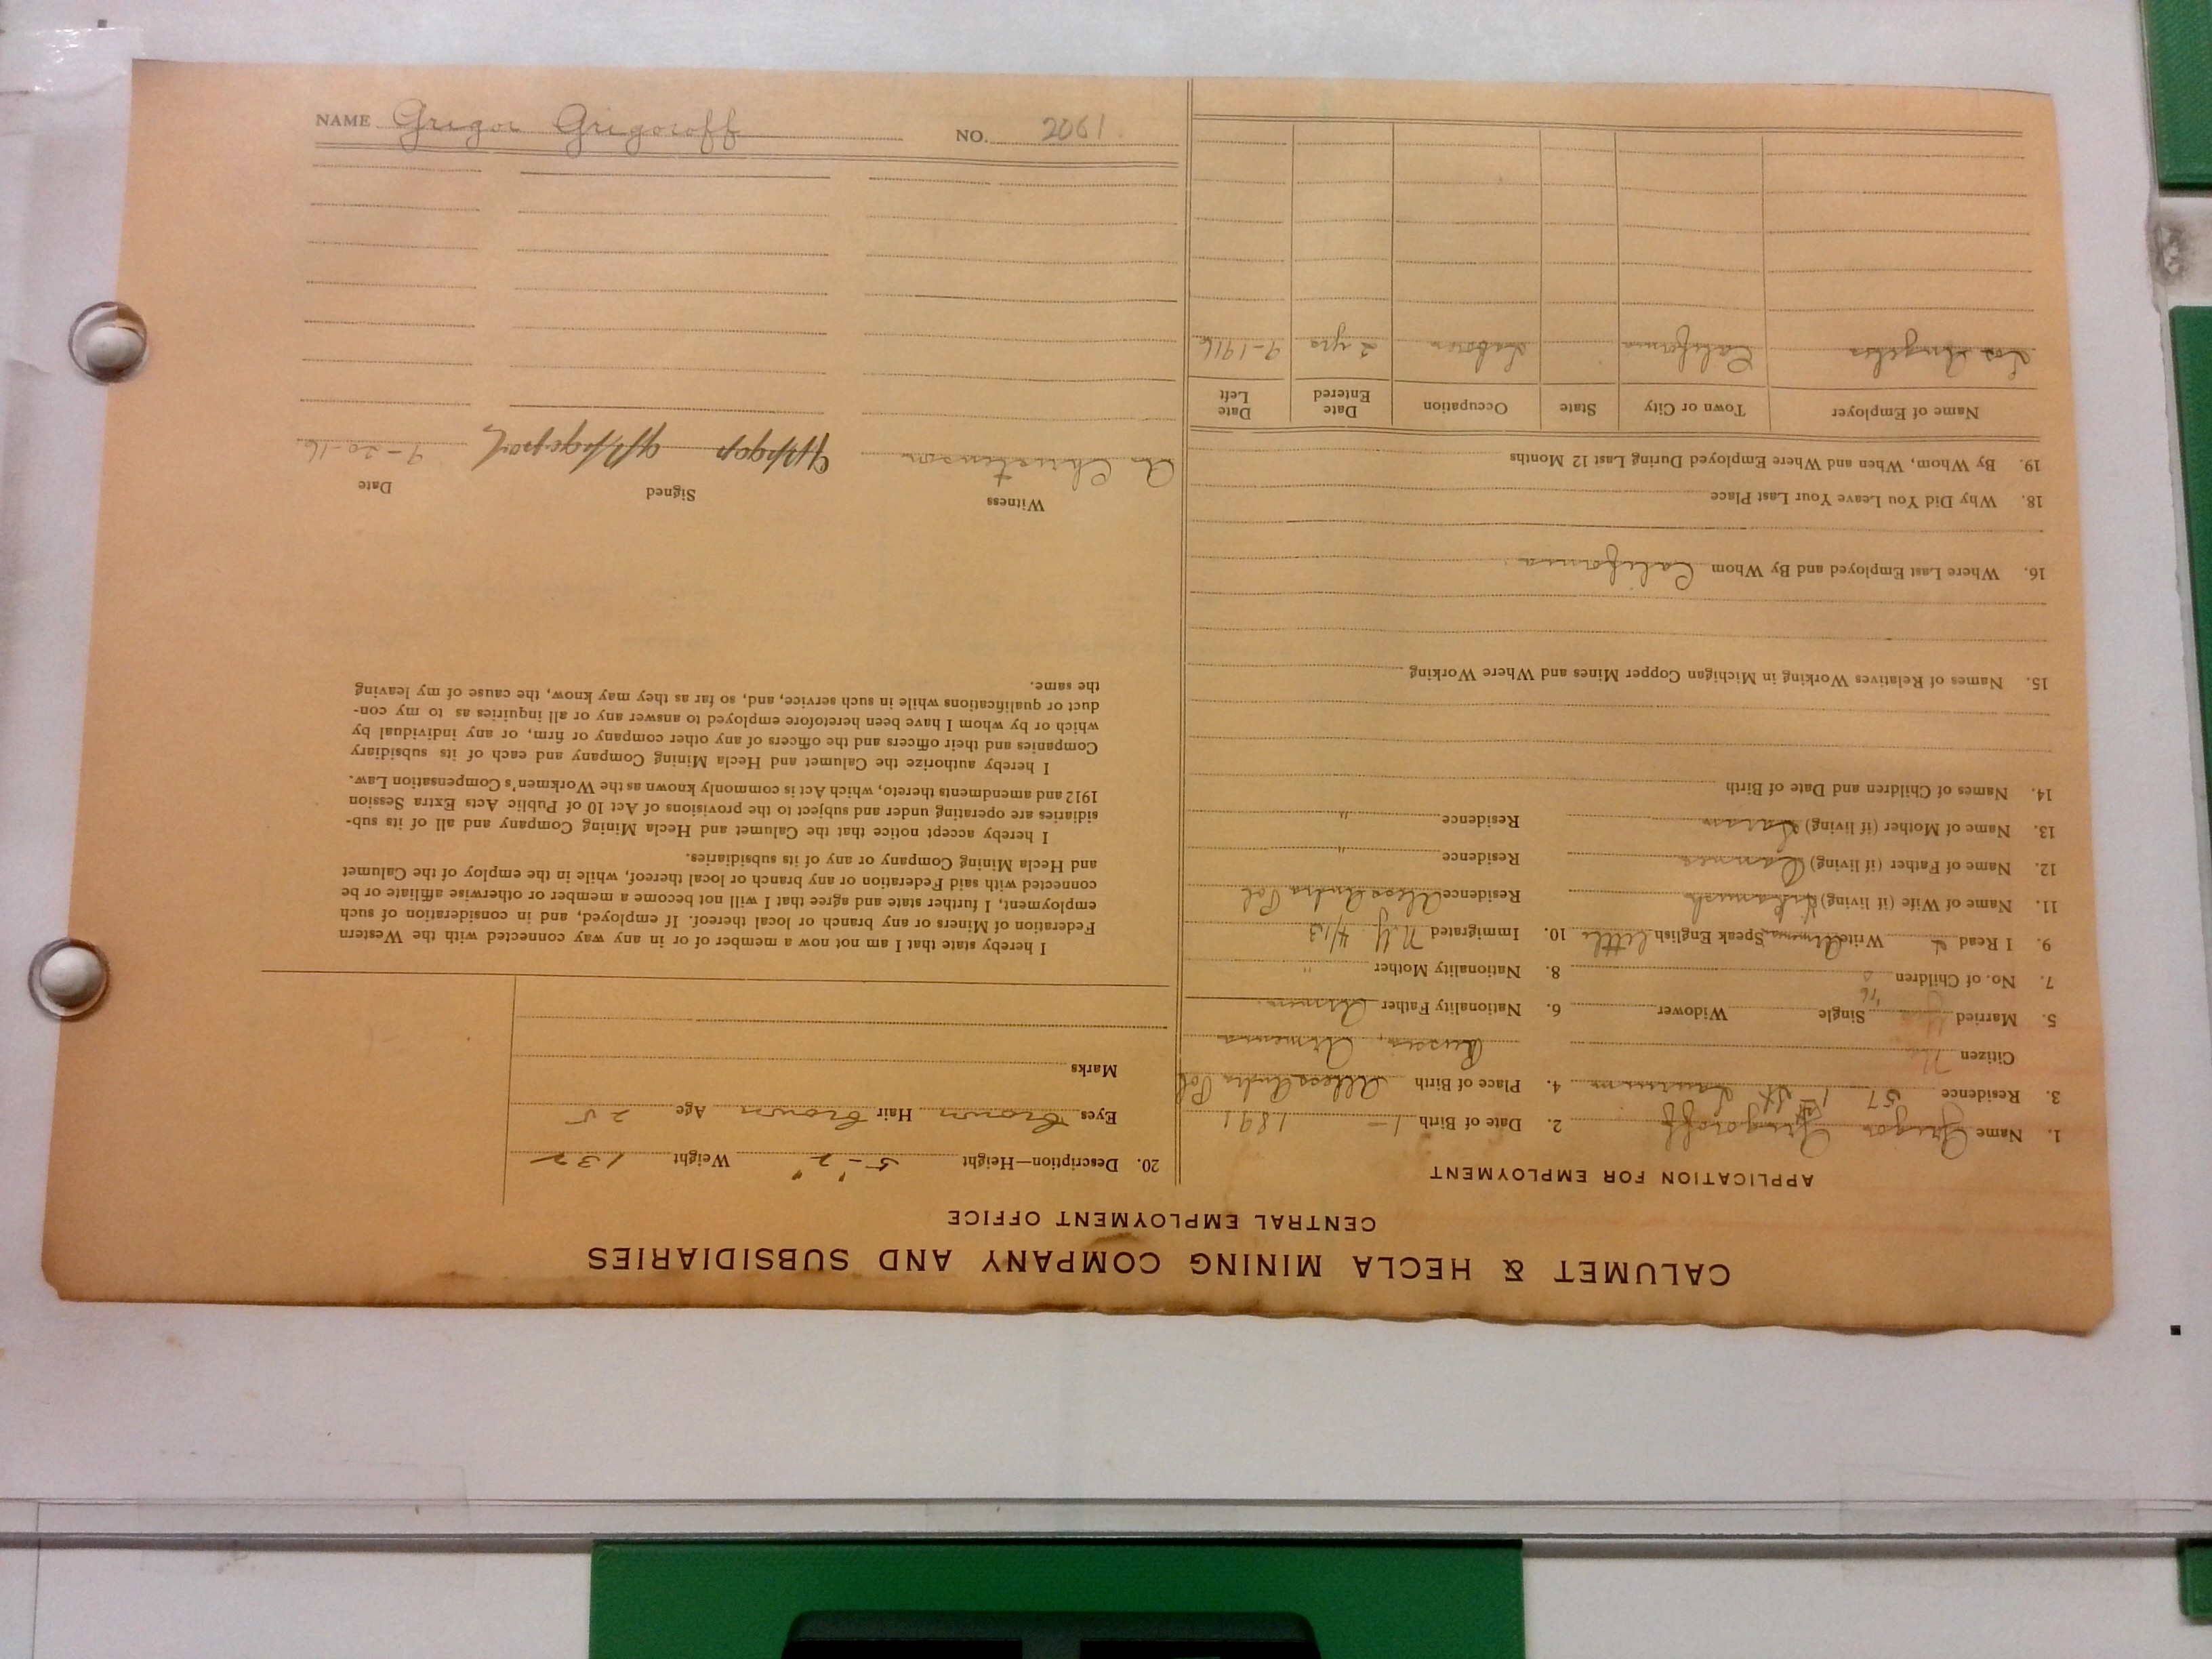 CALUMET & HECLA MINING COMPANY AND SUBSIDIARIES
CENTRAL EMPLOYMENT OFFICE
APPLICATION FOR EMPLOYMENT
1. Name Gregor Grigoroff
2. Date of Birth 1 - 1891
3. Residence 57 1st St Laurium
4. Place of Birth Allexandra Pol
Citizen No Russia, Armenia
5. Married yes Single Widower
6. Nationality Father Armen
7. No. of Children
8. Nationality Mother "
9. I Read Write Speak English little
10. Immigrated N.Y. 4/13
11. Name of Wife (if living) Residence Allexandra Pol
12. Name of Father (if living) Residence "
13. Name of Mother (if living) Residence "
14. Names of Children and Date of Birth
15. Names of Relatives Working in Michigan Copper Mines and Where Working
16. Where Last Employed and By Whom California
18. Why Did You Leave Your Last Place
19. By Whom, When and Where Employed During Last 12 Months
Name of Employer Town or City State Occupation Date Entered Date Left
Los Angeles California Labor 2 yrs 9-1916
20. Description—Height 5'-2" Weight 132
Eyes brown Hair brown Age 25
Marks
I hereby state that I am not now a member of or in any way connected with the Western
Federation of Miners or any branch or local thereof. If employed, and in consideration of such
employment, I further state and agree that I will not become a member or otherwise affiliate or be
connected with said Federation or any branch or local thereof, while in the employ of the Calumet
and Hecla Mining Company or any of its subsidiaries.
I hereby accept notice that the Calumet and Hecla Mining Company and all of its sub-
sidiaries are operating under and subject to the provisions of Act 10 of Public Acts Extra Session
1912 and amendments thereto, which Act is commonly known as the Workmen's Compensation Law.
I hereby authorize the Calumet and Hecla Mining Company and each of its subsidiary
Companies and their officers and the officers of any other company or firm, or any individual by
which or by whom I have been heretofore employed to answer any or all inquiries as to my con-
duct or qualifications while in such service, and, so far as they may know, the cause of my leaving
the same.
Witness Signed Date
A Christenson 9-20-16
NAME Gregor Grigoroff NO. 2061